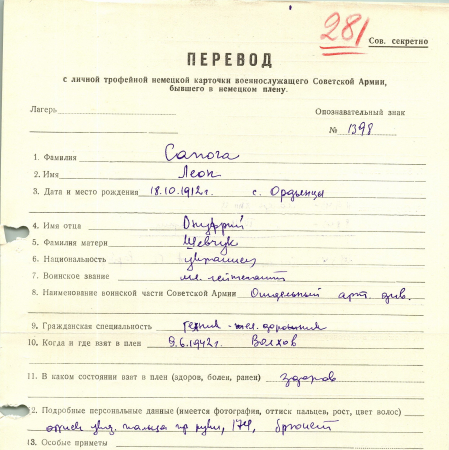 281
Сов. секретно
ПЕРЕВОД
с личной трофейной немецкой карточки военнослужащего Советской Армии,
бывшего в немецком плену.
Лагерь Опознавательный знак
№ 1398
1. Фамилия Сапога
2. Имя Леон
3. Дата и место рождения 18.10.1912г. с. Ордынцы
4. Имя отца Онуфрий
5. Фамилия матери Шевчук
6. Национальность украинец
7. Воинское звание мл. лейтенант
8. Наименование воинской части Советской Армии Отдельный арт. див.
9. Гражданская специальность техник-жел. дорожник
10. Когда и где взят в плен 9.6.1942г. Волхов
11. В каком состоянии взят в плен (здоров, болен, ранен) здоров
2. Подробные персональные данные (имеется фотография, оттиск пальцев, рост, цвет волос)
оттиск указ. пальца пр. руки, 174, брюнет
13. Особые приметы